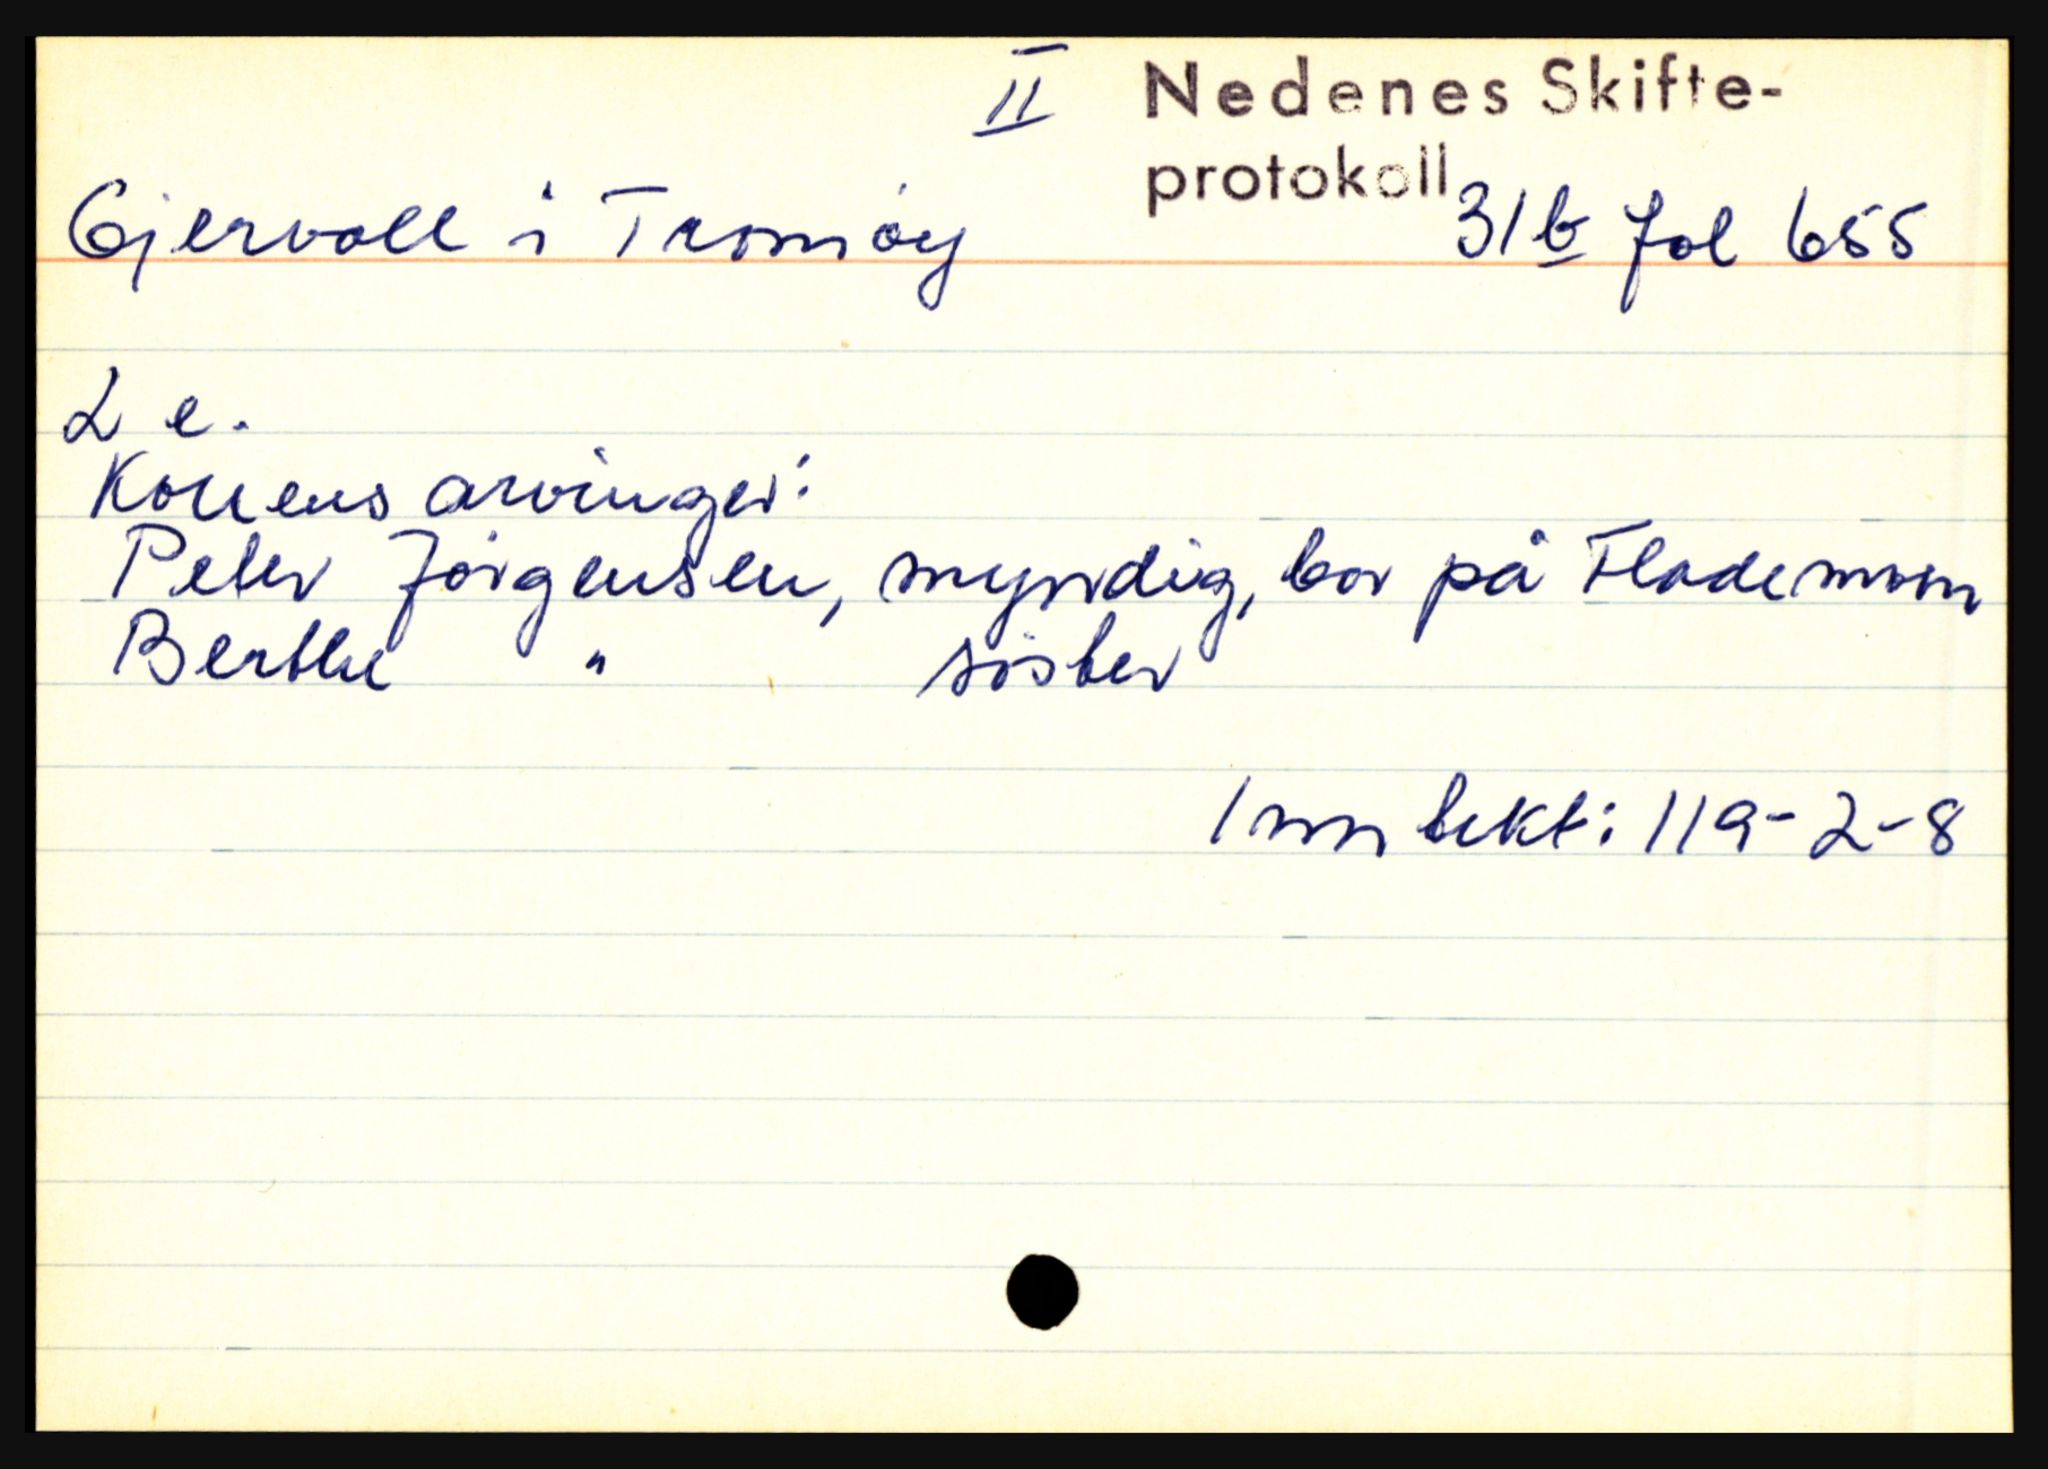 II Nedenes Skifte-
protokoll
Gjervoll i Tromöy 31b fol 655
L e.
Konens arvinger:
Peter Jörgensen, myndig, bor på Flademoen
Berthe " söster
Inntekt: 119-2-8